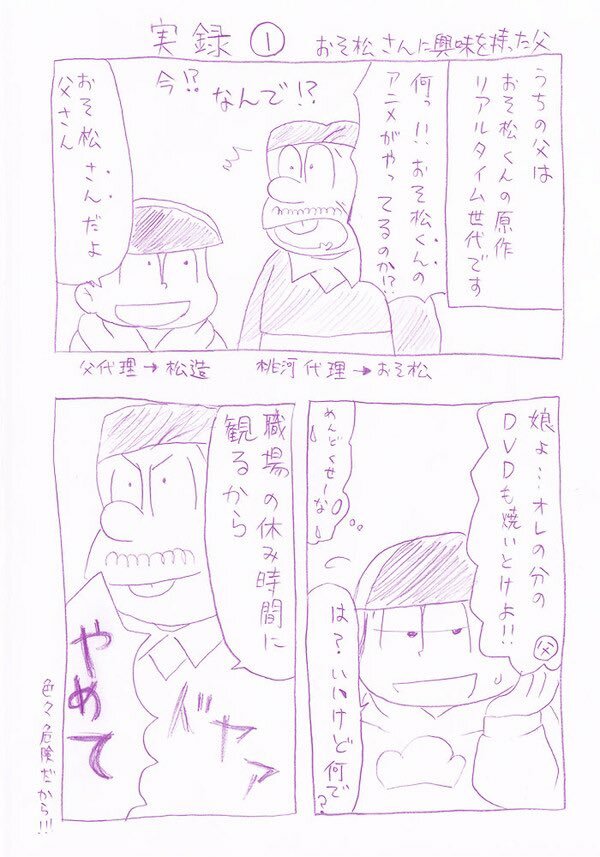 実録① おそ松さんに興味を持った父
うちの父は
おそ松くんの原作
リアルタイム世代です
何っ!!おそ松くんの
アニメがやってるのか!?
なんで!?
今!?
おそ松さんだよ
父さん
父代理→松造
桃河代理→おそ松
娘よ…オレの分の
DVDも焼いとけよ!!
父
めんどくせーな
は?いいけど何で?
職場の休み時間に
観るから
やめて
ズヤァ
色々危険だから!!!